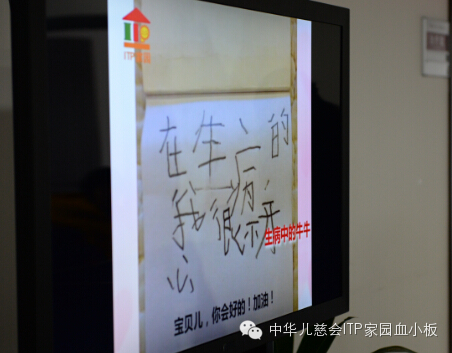 ITP
在生病的
我很
心
生病中的牛牛
宝贝儿，你会好的！加油！
中华儿慈会ITP家园血小板